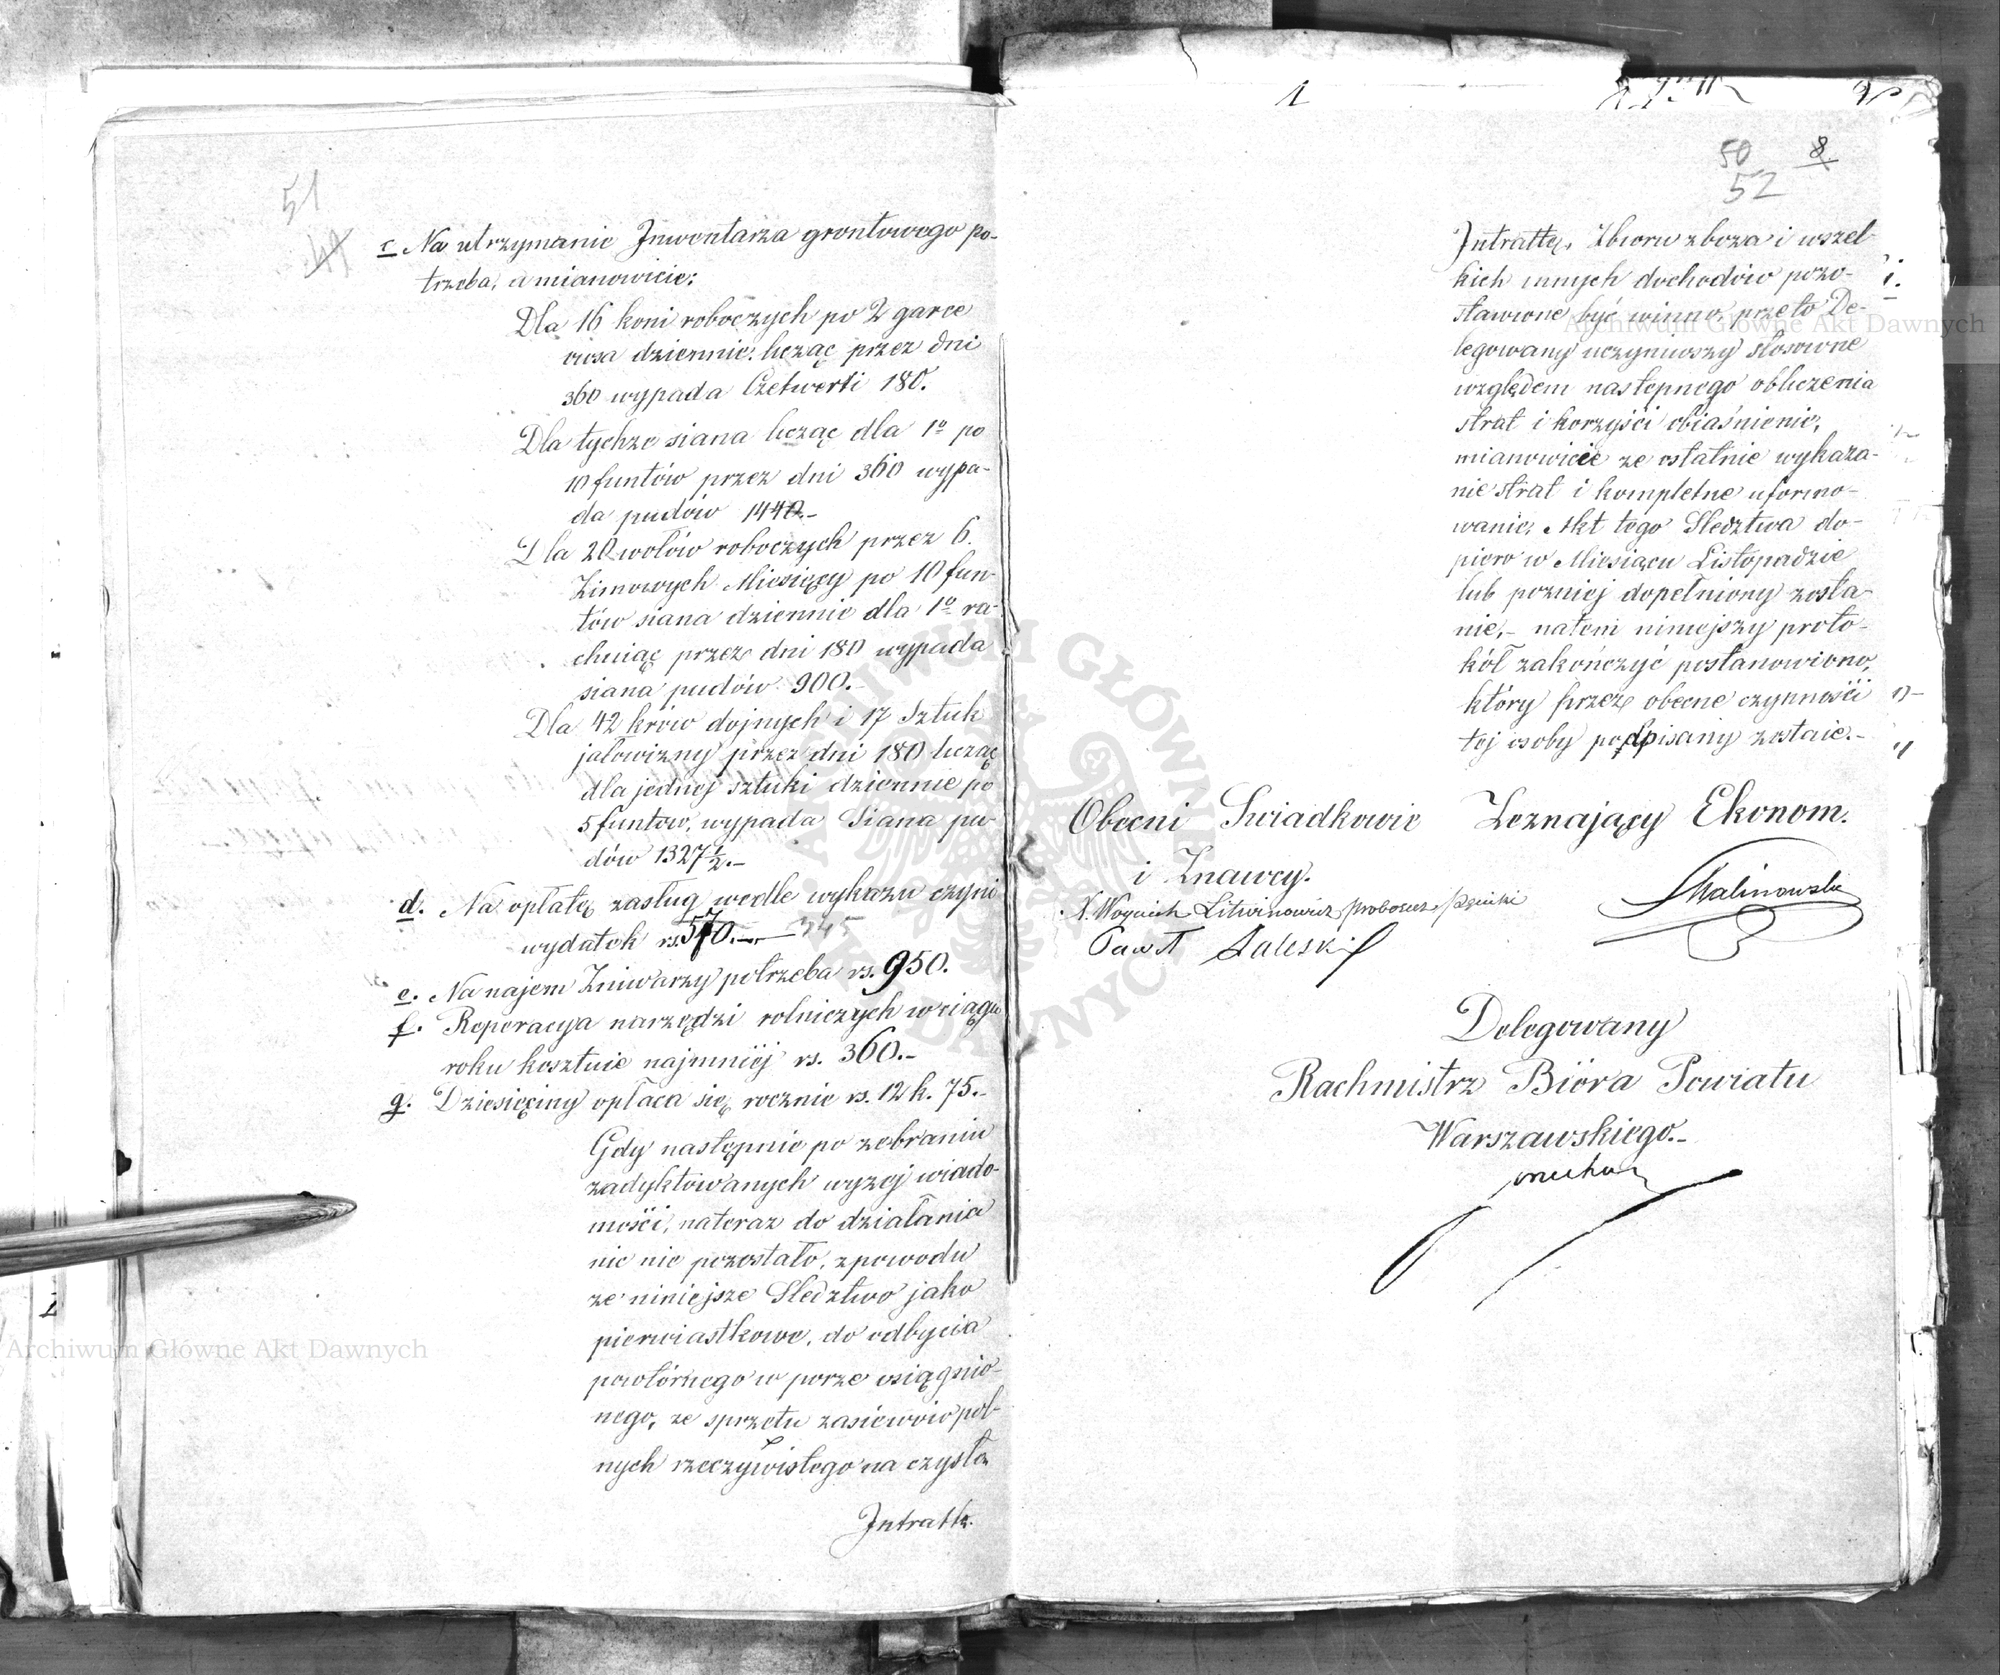 51
49
c Na utrzymanie Inwentarza grontowego po-
trzeba, a mianowicie:
Dla 16 koni roboczych po 2 garce
owsa dziennie, licząc przez dni
360 wypada Czetwerti 180.
Dla tychże siana licząc dla 1º po
10 funtów przez dni 360 wypa-
da pudów 1440.-
Dla 20 wołów roboczych przez 6.
Zimowych Miesięcy po 10 fun-
tów siana dziennie dla 1º ra-
chuiąc przez dni 180 wypada
siana pudów 900.-
Dla 42 krów dojnych i 17 Sztuk
jałowizny przez dni 180 licząc
dla jednej sztuki dziennie po
5 funtow, wypada Siana pu-
dów 1327½.-
d. Na opłatę zasług wedle wykazu czyni
wydatek rs. 570.- 345
e. Na najem Żniwarzy potrzeba rs. 950.
f. Reperacya narzędzi rolniczych w ciągu
roku kosztuie najmniéj rs. 360.-
g. Dziesięciny opłaca się rocznie rs. 12 k. 75.-
Gdy następnie po zebraniu
zadyktowanych wyzej wiado-
mości, nateraz do działania
nic nie pozostało, z powodu
ze niniejsze Sledztwo jako
pierwiastkowe, do odbycia
powtórnego w porze osiągnio-
nego, ze sprzętu zasiewów pol-
nych rzeczywistego na czysto
Intratę.
50 8
52
Intratę, Zbioru zboza i wszel-
kich innych dochodów pozo-
stawione być winno, przeto De-
legowany uczyniwszy stosowne
względem następnego obliczenia
strat i korzyści obiaśnienie,
mianowicie ze ostatnie wykaza-
nie strat i kompletne uformo-
wanie Akt tego Sledztwa do-
piero w Miesiącu Listopadzie
lub pozniej dopełniony zosta-
nie,- natem niniejszy proto-
kół zakończyć postanowiono,
który przez obecne czynności
tej osoby podpisany zostaie.-
Obecni Swiadkowie Zeznający Ekonom.
i Znawcy.
Malinowski
X. Woyciech Litwinowicz proboszcz
Paweł Zaleski
Delegowany
Rachmistrz Bióra Powiatu
Warszawskiego.-
Archiwum Główne Akt Dawnych
Archiwum Główne Akt Dawnych
ARCHIWUM GŁÓWNE AKT DAWNYCH